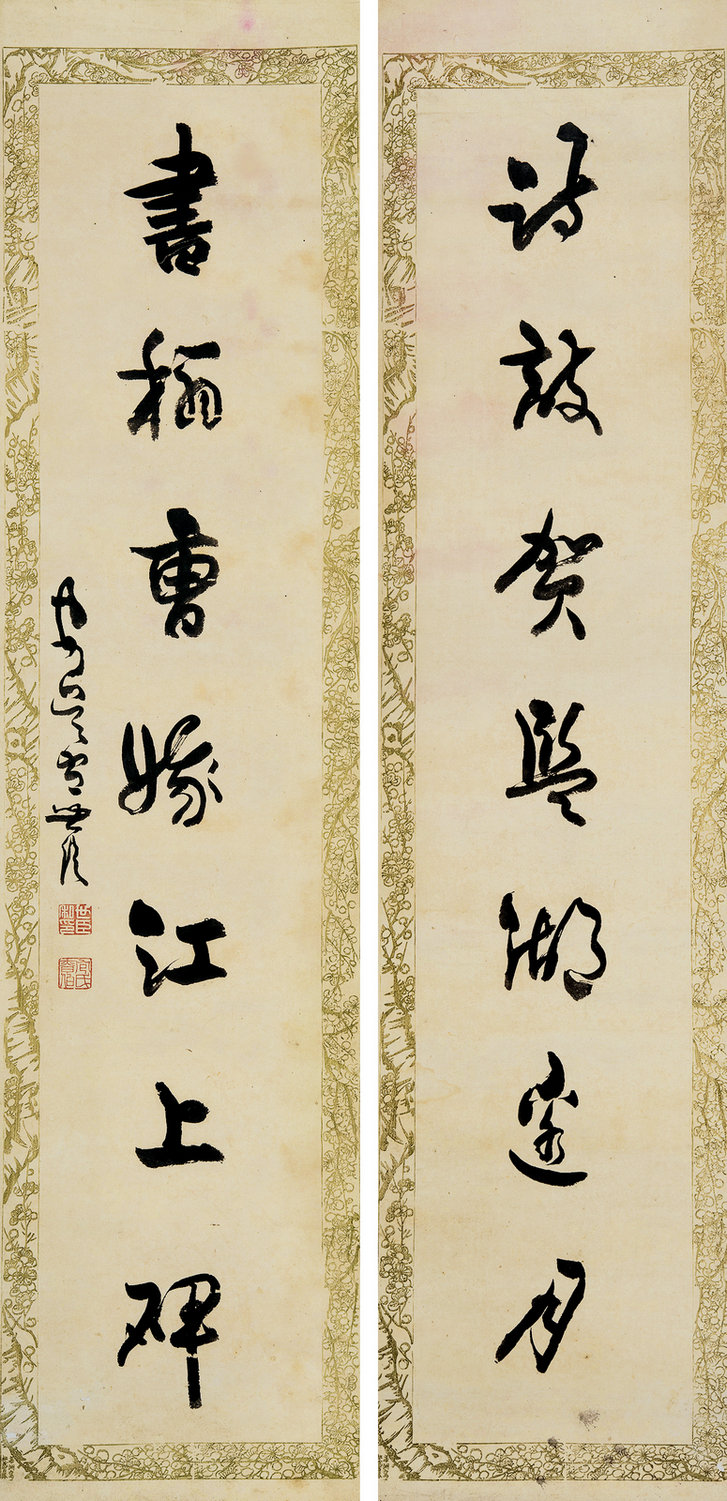 詩敲賀監湖邊月
書稱曹娥江上碑
世臣